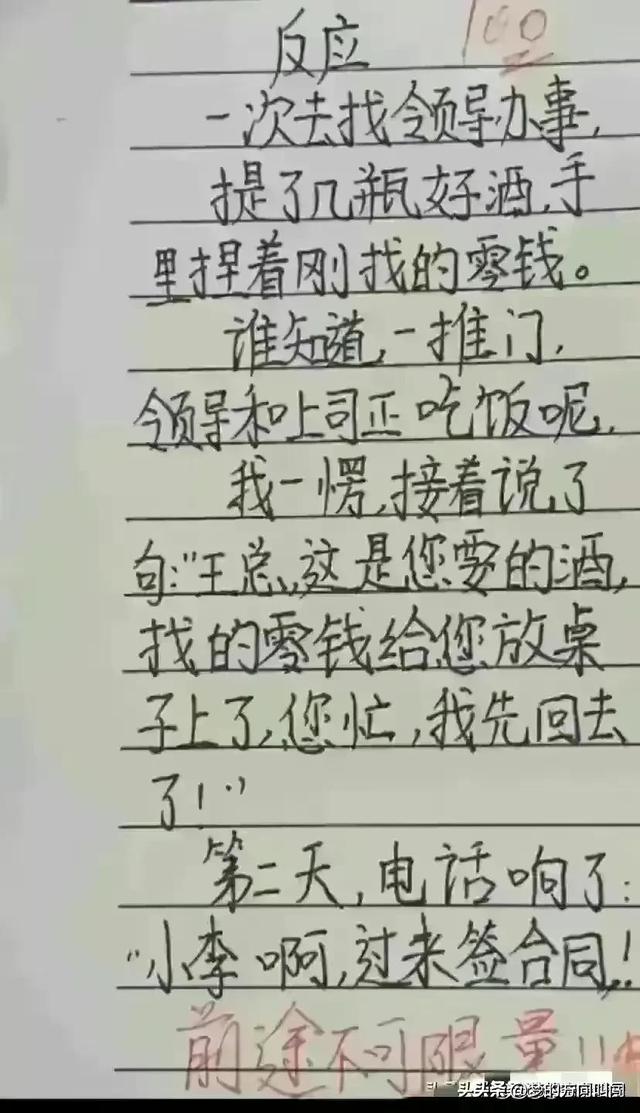 反应
100
一次去找领导办事,
提了几瓶好酒,手
里捏着刚找的零钱。
谁知道,一推门,
领导和上司正吃饭呢,
我一愣,接着说了
句:"王总,这是您要的酒,
找的零钱给您放桌
子上了,您忙,我先回去
了!"
第二天,电话响了:
"小李啊,过来签合同!
前途不可限量!!
头条@梦的方向叫闯